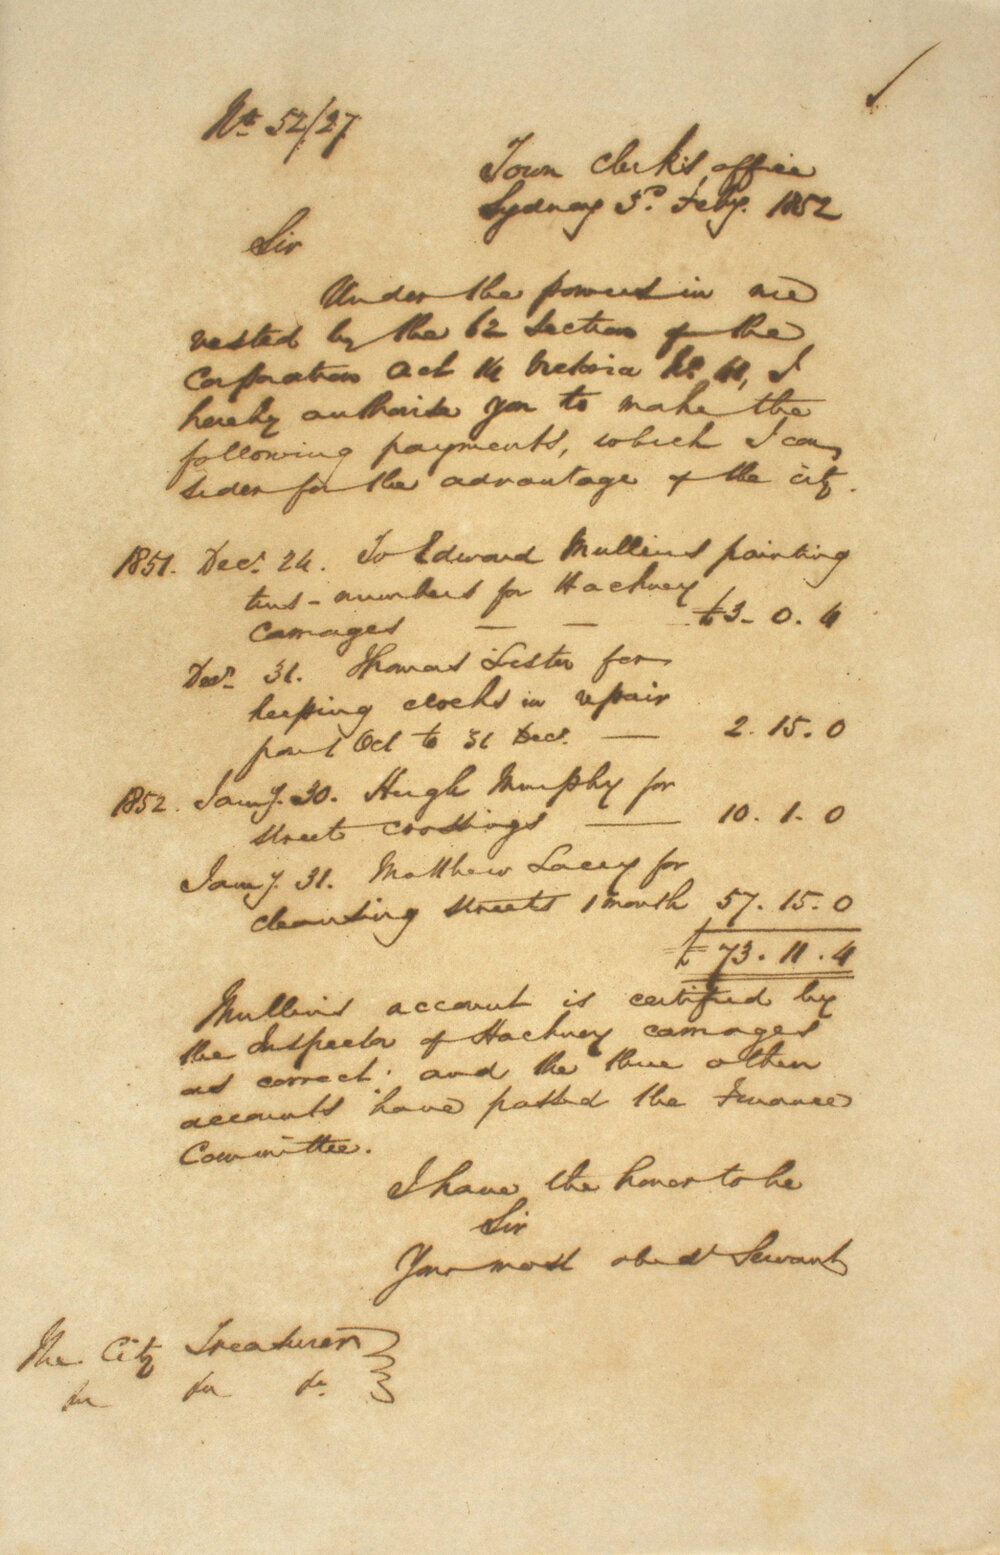 No. 52/27
Town Clerk's office
Sydney 3d. Feby. 1852
Sir
Under the powers in me
vested by the 62 Section of the
Corporation Act 14 Victoria No. 41, I
hereby authorise you to make the
following payments, which I con
sider for the advantage of the city.
1851. Decr. 24. To Edward Mullins painting
tins - numbers for Hackney
carriages £3. 0. 4
Decr. 31. Thomas Lester for
keeping clocks in repair
from 1 Oct to 31 Decr. 2. 15. 0
1852. Jany. 30. Hugh Murphy for
street crossings 10. 1. 0
Jany. 31. Matthew Lacey for
cleansing streets 1 month 57. 15. 0
£ 73. 11. 4
Mullins account is certified by
the Inspector of Hackney carriages
as correct; and the three other
accounts have passed the Finance
Committee.
I have the honor to be
Sir
Your most obedt Servant
The City Treasurer